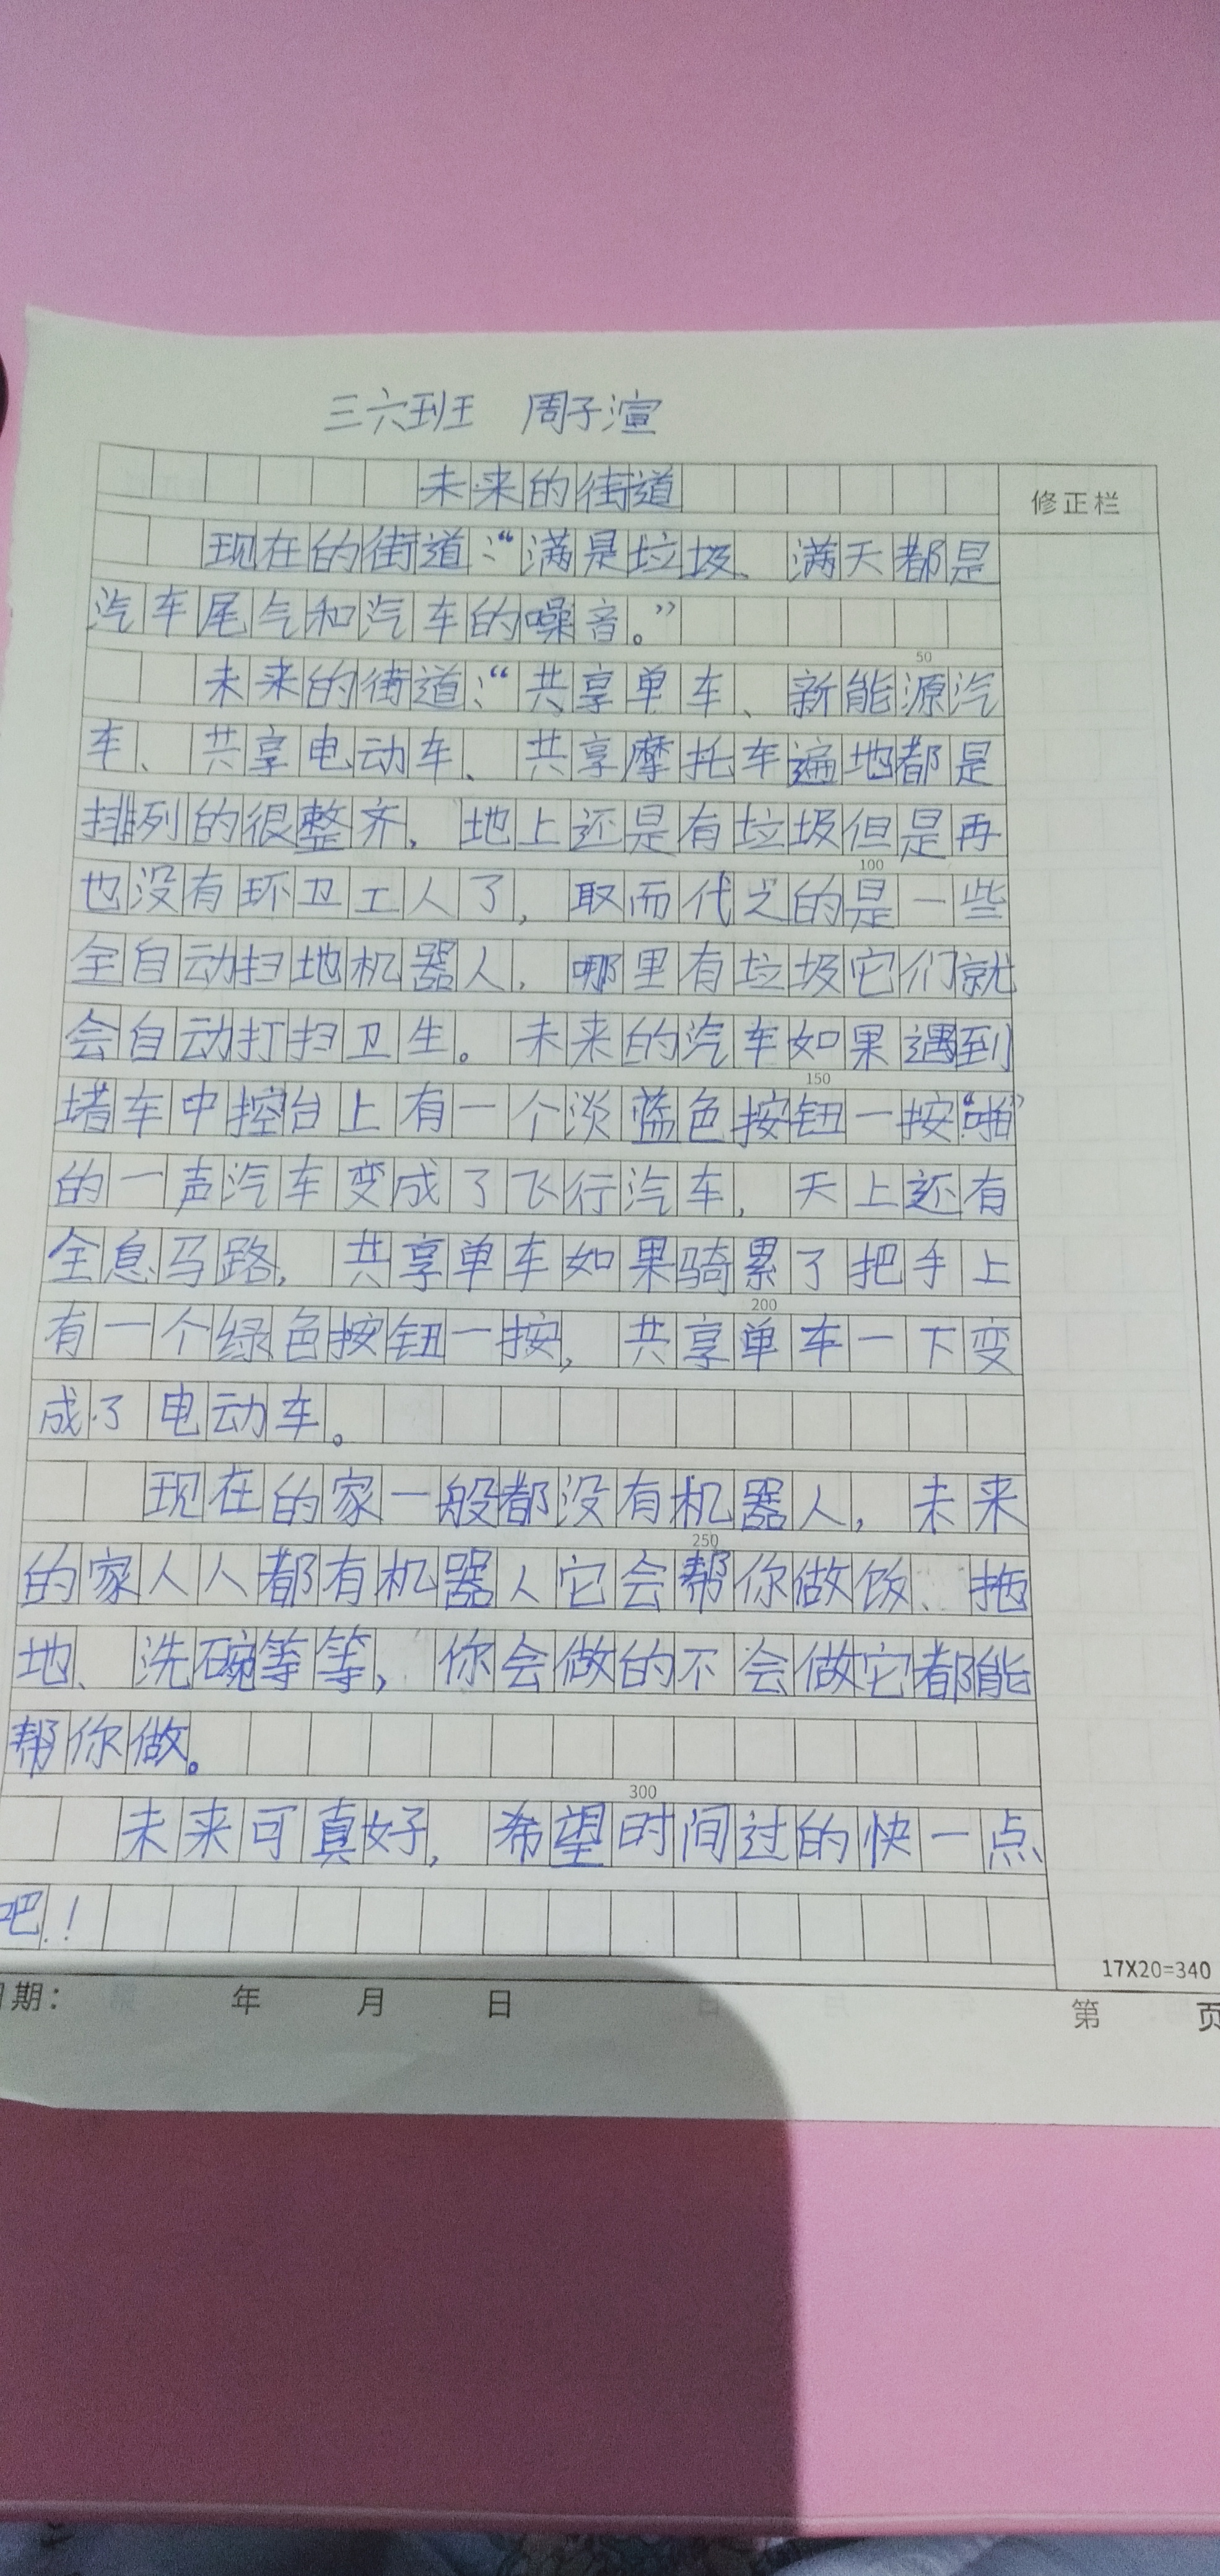 三六班 周子渲
未来的街道
修正栏
现在的街道:“满是垃圾、满天都是
汽车尾气和汽车的噪音。”
50
未来的街道:“共享单车、新能源汽
车、共享电动车、共享摩托车遍地都是
排列的很整齐,地上还是有垃圾但是再
100
也没有环卫工人了,取而代之的是一些
全自动扫地机器人,哪里有垃圾它们就
会自动打扫卫生。未来的汽车如果遇到
150
堵车中控台上有一个淡蓝色按钮一按“啪”
的一声汽车变成了飞行汽车,天上还有
全息马路,共享单车如果骑累了把手上
200
有一个绿色按钮一按,共享单车一下变
成了电动车。
现在的家一般都没有机器人,未来
250
的家人人都有机器人它会帮你做饭、拖
地、洗碗等等,你会做的不会做它都能
帮你做。
300
未来可真好,希望时间过的快一点
吧!
17X20=340
期: 年 月 日
第 页